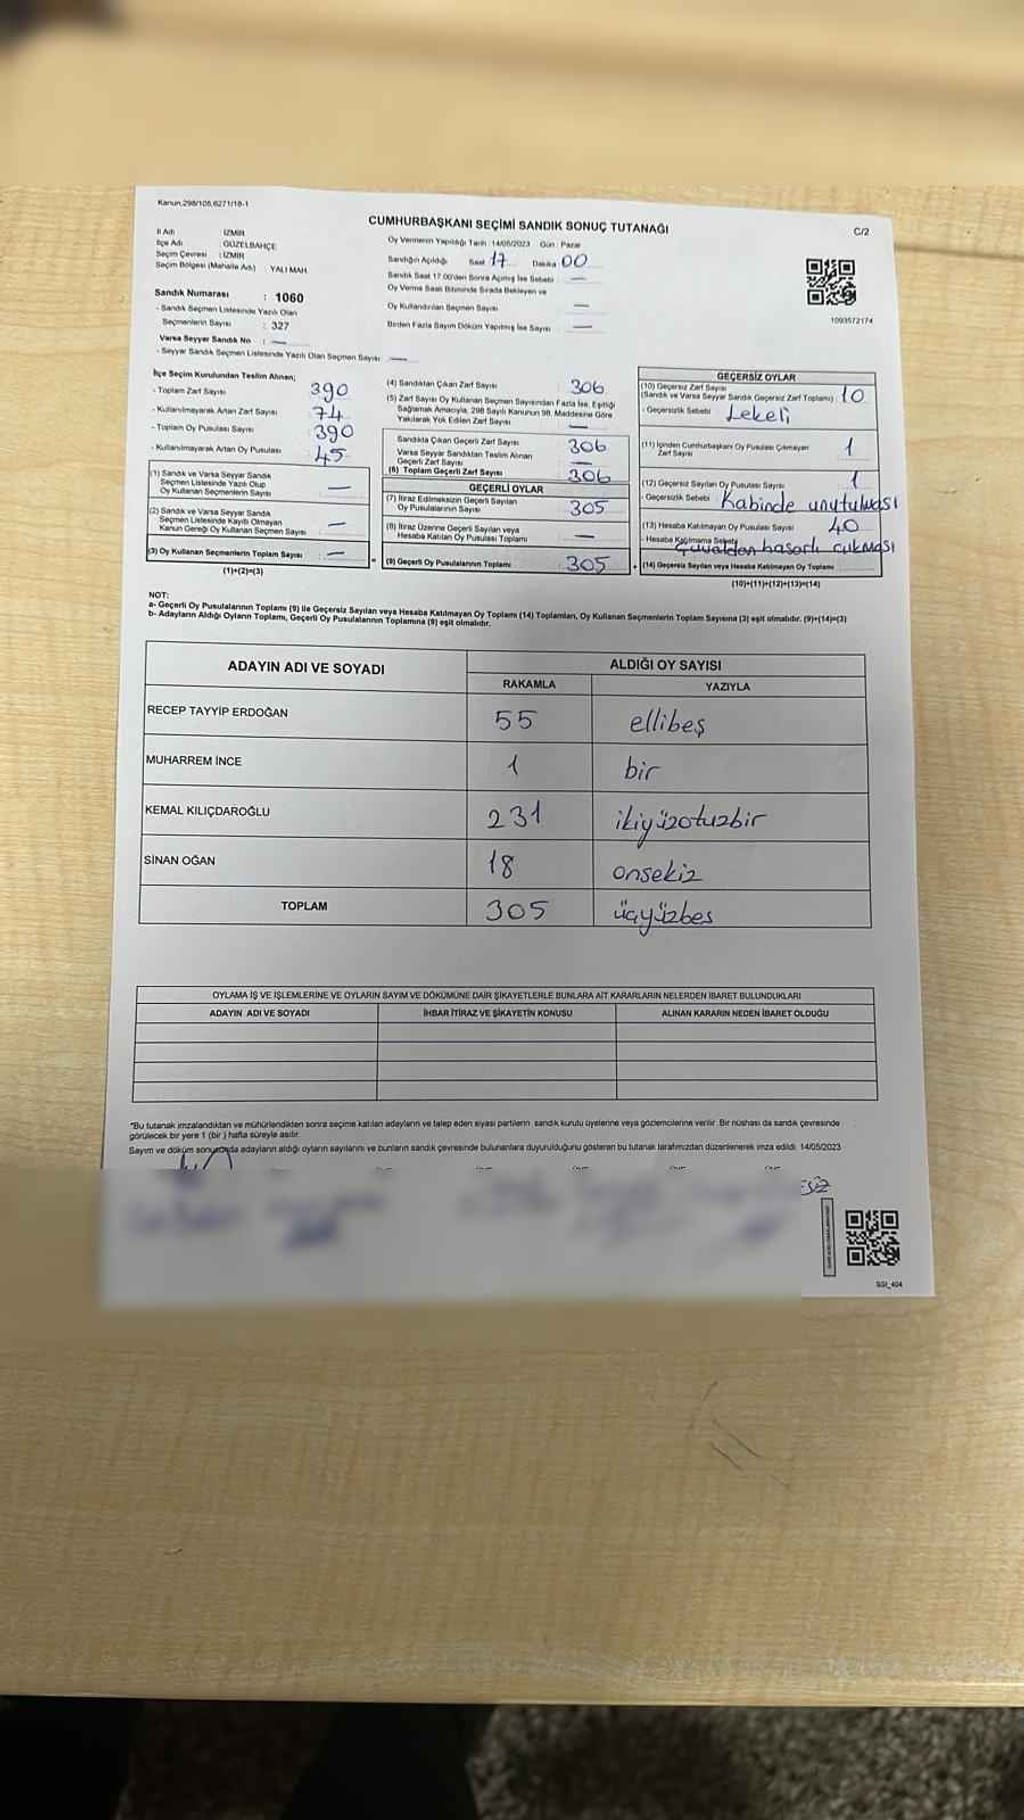 Kanun.298/105,6271/18-1
CUMHURBAŞKANI SEÇİMİ SANDIK SONUÇ TUTANAĞI
C/2
İl Adı İZMİR
İlçe Adı : GÜZELBAHÇE
Seçim Çevresi : İZMİR
Seçim Bölgesi (Mahalle Adı) YALI MAH.
Sandık Numarası : 1060
- Sandık Seçmen Listesinde Yazılı Olan
Seçmenlerin Sayısı : 327
Varsa Seyyar Sandık No : —
- Seyyar Sandık Seçmen Listesinde Yazılı Olan Seçmen Sayısı —
Oy Vermenin Yapıldığı Tarih : 14/05/2023 Gün : Pazar
Sandığın Açıldığı Saat 17 Dakika 00
Sandık Saat 17.00'den Sonra Açılmış İse Sebebi —
Oy Verme Saati Bitiminde Sırada Bekleyen ve
Oy Kullandırılan Seçmen Sayısı —
Birden Fazla Sayım Döküm Yapılmış İse Sayısı —
1093572174
İlçe Seçim Kurulundan Teslim Alınan;
- Toplam Zarf Sayısı 390
- Kullanılmayarak Artan Zarf Sayısı 74
- Toplam Oy Pusulası Sayısı 390
- Kullanılmayarak Artan Oy Pusulası 45
(1) Sandık ve Varsa Seyyar Sandık
Seçmen Listesinde Yazılı Olup
Oy Kullanan Seçmenlerin Sayısı —
(2) Sandık ve Varsa Seyyar Sandık
Seçmen Listesinde Kayıtlı Olmayan
Kanun Gereği Oy Kullanan Seçmen Sayısı —
(3) Oy Kullanan Seçmenlerin Toplam Sayısı —
(1)+(2)=(3)
(4) Sandıktan Çıkan Zarf Sayısı 306
(5) Zarf Sayısı Oy Kullanan Seçmen Sayısından Fazla İse, Eşitliği
Sağlamak Amacıyla, 298 Sayılı Kanunun 98. Maddesine Göre
Yakılarak Yok Edilen Zarf Sayısı —
Sandıkta Çıkan Geçerli Zarf Sayısı 306
Varsa Seyyar Sandıktan Teslim Alınan
Geçerli Zarf Sayısı —
(6) Toplam Geçerli Zarf Sayısı 306
GEÇERLİ OYLAR
(7) İtiraz Edilmeksizin Geçerli Sayılan
Oy Pusulalarının Sayısı 305
(8) İtiraz Üzerine Geçerli Sayılan veya
Hesaba Katılan Oy Pusulası Toplamı —
(9) Geçerli Oy Pusulalarının Toplamı 305
GEÇERSİZ OYLAR
(10) Geçersiz Zarf Sayısı
(Sandık ve Varsa Seyyar Sandık Geçersiz Zarf Toplamı) 10
- Geçersizlik Sebebi Lekeli
(11) İçinden Cumhurbaşkanı Oy Pusulası Çıkmayan
Zarf Sayısı 1
(12) Geçersiz Sayılan Oy Pusulası Sayısı 1
- Geçersizlik Sebebi Kabinde unutulması
(13) Hesaba Katılmayan Oy Pusulası Sayısı 40
- Hesaba Katılmama Sebebi Çuvaldan hasarlı çıkması
(14) Geçersiz Sayılan veya Hesaba Katılmayan Oy Toplamı
(10)+(11)+(12)+(13)=(14)
NOT:
a- Geçerli Oy Pusulalarının Toplamı (9) ile Geçersiz Sayılan veya Hesaba Katılmayan Oy Toplamı (14) Toplamları, Oy Kullanan Seçmenlerin Toplam Sayısına (3) eşit olmalıdır. (9)+(14)=(3)
b- Adayların Aldığı Oyların Toplamı, Geçerli Oy Pusulalarının Toplamına (9) eşit olmalıdır.
ADAYIN ADI VE SOYADI
ALDIĞI OY SAYISI
RAKAMLA YAZIYLA
RECEP TAYYİP ERDOĞAN 55 ellibeş
MUHARREM İNCE 1 bir
KEMAL KILIÇDAROĞLU 231 ikiyüzotuzbir
SİNAN OĞAN 18 onsekiz
TOPLAM 305 üçyüzbes
OYLAMA İŞ VE İŞLEMLERİNE VE OYLARIN SAYIM VE DÖKÜMÜNE DAİR ŞİKAYETLERLE BUNLARA AİT KARARLARIN NELERDEN İBARET BULUNDUKLARI
ADAYIN ADI VE SOYADI İHBAR İTİRAZ VE ŞİKAYETİN KONUSU ALINAN KARARIN NEDEN İBARET OLDUĞU
*Bu tutanak imzalandıktan ve mühürlendikten sonra seçime katılan adayların ve talep eden siyasi partilerin sandık kurulu üyelerine veya gözlemcilerine verilir. Bir nüshası da sandık çevresinde
görülecek bir yere 1 (bir ) hafta süreyle asılır.
Sayım ve döküm sonucunda adayların aldığı oyların sayılarını ve bunların sandık çevresinde bulunanlara duyurulduğunu gösteren bu tutanak tarafımızdan düzenlenerek imza edildi. 14/05/2023
SGI_404